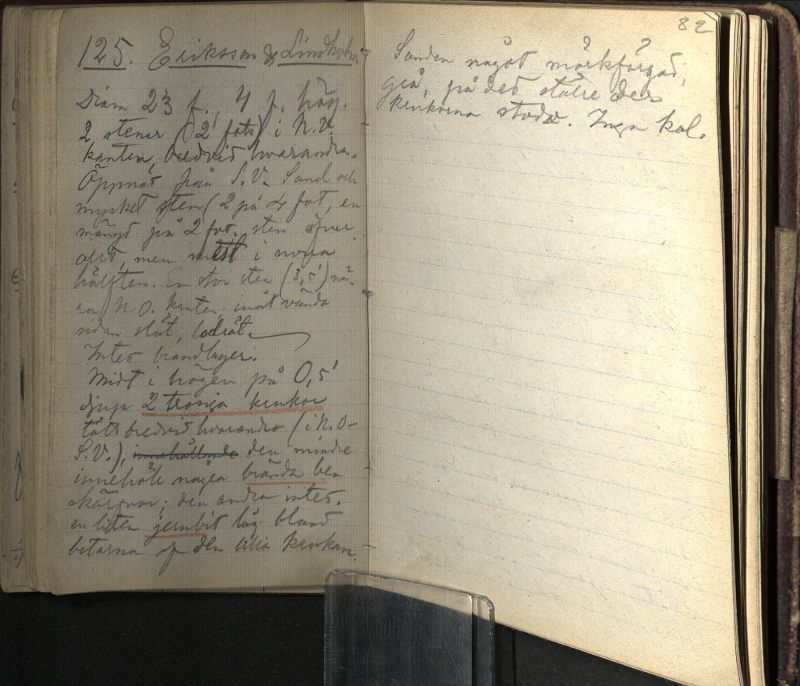 125. Eriksson & Lindholm
Diam 23 f. 4 f. hög.
2 stenar (2 fots) i N.V.
kanten, bredvid hvarandra.
Öppnad från S.V. Sand och
mycket sten (2 på 4 fot, en
mängd på 2 fot, sten öfver
allt, men mest i norra
hälften. En stor sten (3,5') nä-
ra N.O. kanten, inåt vända
sidan slät, lodrät.
Intet brandlager.
Midt i högen på 0,5'
djup 2 trasiga krukor
tätt bredvid hvarandra (i N.O-
S.V.), innehållande den mindre
innehöll några brända ben
skärfvor; den andra intet.
en liten jernbit låg bland
bitarna af den lilla krukan.
82
Sanden något mörkfärgad,
grå, på det ställe der
krukorna stodo. Inga kol.